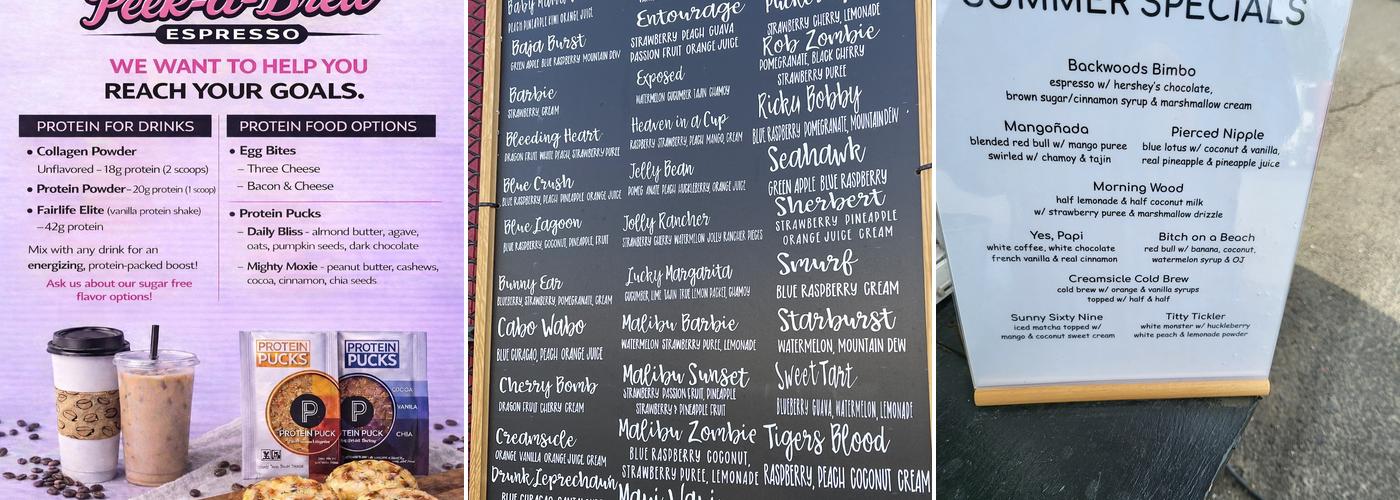 Peek-a-Brew
ESPRESSO
WE WANT TO HELP YOU
REACH YOUR GOALS.
PROTEIN FOR DRINKS
• Collagen Powder
Unflavored - 18g protein (2 scoops)
• Protein Powder - 20g protein (1 scoop)
• Fairlife Elite (vanilla protein shake)
- 42g protein
Mix with any drink for an
energizing, protein-packed boost!
Ask us about our sugar free
flavor options!
PROTEIN FOOD OPTIONS
• Egg Bites
- Three Cheese
- Bacon & Cheese
• Protein Pucks
- Daily Bliss - almond butter, agave,
oats, pumpkin seeds, dark chocolate
- Mighty Moxie - peanut butter, cashews,
cocoa, cinnamon, chia seeds
PROTEIN
PUCKS
PROTEIN PUCK
PROTEIN
PUCKS
COCOA
VANILA
CHIA
Baby
PEACH PINEAPPLE KIWI ORANGE JUICE
Baja Burst
GREEN APPLE BLUE RASPBERRY MOUNTAIN DEW
Barbie
STRAWBERRY CREAM
Bleeding Heart
DRAGON FRUIT WHITE PEACH, STRAWBERRY PUREE
Blue Crush
BLUE RASPBERRY, PEACH PINEAPPLE ORANGE JUICE
Blue Lagoon
BLUE RASPBERRY, COCONUT, PINEAPPLE, FRUIT
Bunny Ear
BLUEBERRY, STRAWBERRY, POMEGRANATE, CREAM
Cabo Wabo
BLUE CURACAO, PEACH ORANGE JUICE
Cherry Bomb
DRAGON FRUIT CHERRY CREAM
Creamsicle
ORANGE VANILLA ORANGE JUICE CREAM
Drunk Leprechaun
BLUE CURACAO
Entourage
STRAWBERRY PEACH GUAVA
PASSION FRUIT ORANGE JUICE
Exposed
WATERMELON CUCUMBER TAJIN CHAMOY
Heaven in a Cup
RASPBERRY STRAWBERRY, PEACH MANGO, CREAM
Jelly Bean
PEACH HUCKLEBERRY, ORANGE JUICE
Jolly Rancher
STRAWBERRY CHERRY WATERMELON JOLLY RANCHER PIECES
Lucky Margarita
CUCUMBER, LIME TAJIN TRUE LEMON PACKET, CHAMOY
Malibu Barbie
WATERMELON STRAWBERRY PUREE, LEMONADE
Malibu Sunset
STRAWBERRY PASSION FRUIT, PINEAPPLE
STRAWBERRY & PINEAPPLE FRUIT
Malibu Zombie
BLUE RASPBERRY COCONUT,
STRAWBERRY PUREE, LEMONADE
STRAWBERRY CHERRY, LEMONADE
Rob Zombie
POMEGRANATE, BLACK CHERRY
STRAWBERRY PUREE
Ricky Bobby
BLUE RASPBERRY POMEGRANATE, MOUNTAIN DEW
Seahawk
GREEN APPLE BLUE RASPBERRY
Sherbert
STRAWBERRY PINEAPPLE
ORANGE JUICE CREAM
Smurf
BLUE RASPBERRY CREAM
Starburst
WATERMELON, MOUNTAIN DEW
Sweet Tart
BLUEBERRY GUAVA, WATERMELON, LEMONADE
Tigers Blood
RASPBERRY, PEACH COCONUT CREAM
SUMMER SPECIALS
Backwoods Bimbo
espresso w/ hershey's chocolate,
brown sugar/cinnamon syrup & marshmallow cream
Mangoñada
blended red bull w/ mango puree
swirled w/ chamoy & tajin
Pierced Nipple
blue lotus w/ coconut & vanilla,
real pineapple & pineapple juice
Morning Wood
half lemonade & half coconut milk
w/ strawberry puree & marshmallow drizzle
Yes, Papi
white coffee, white chocolate
french vanilla & real cinnamon
Bitch on a Beach
red bull w/ banana, coconut,
watermelon syrup & OJ
Creamsicle Cold Brew
cold brew w/ orange & vanilla syrups
topped w/ half & half
Sunny Sixty Nine
iced matcha topped w/
mango & coconut sweet cream
Titty Tickler
white monster w/ huckleberry
white peach & lemonade powder